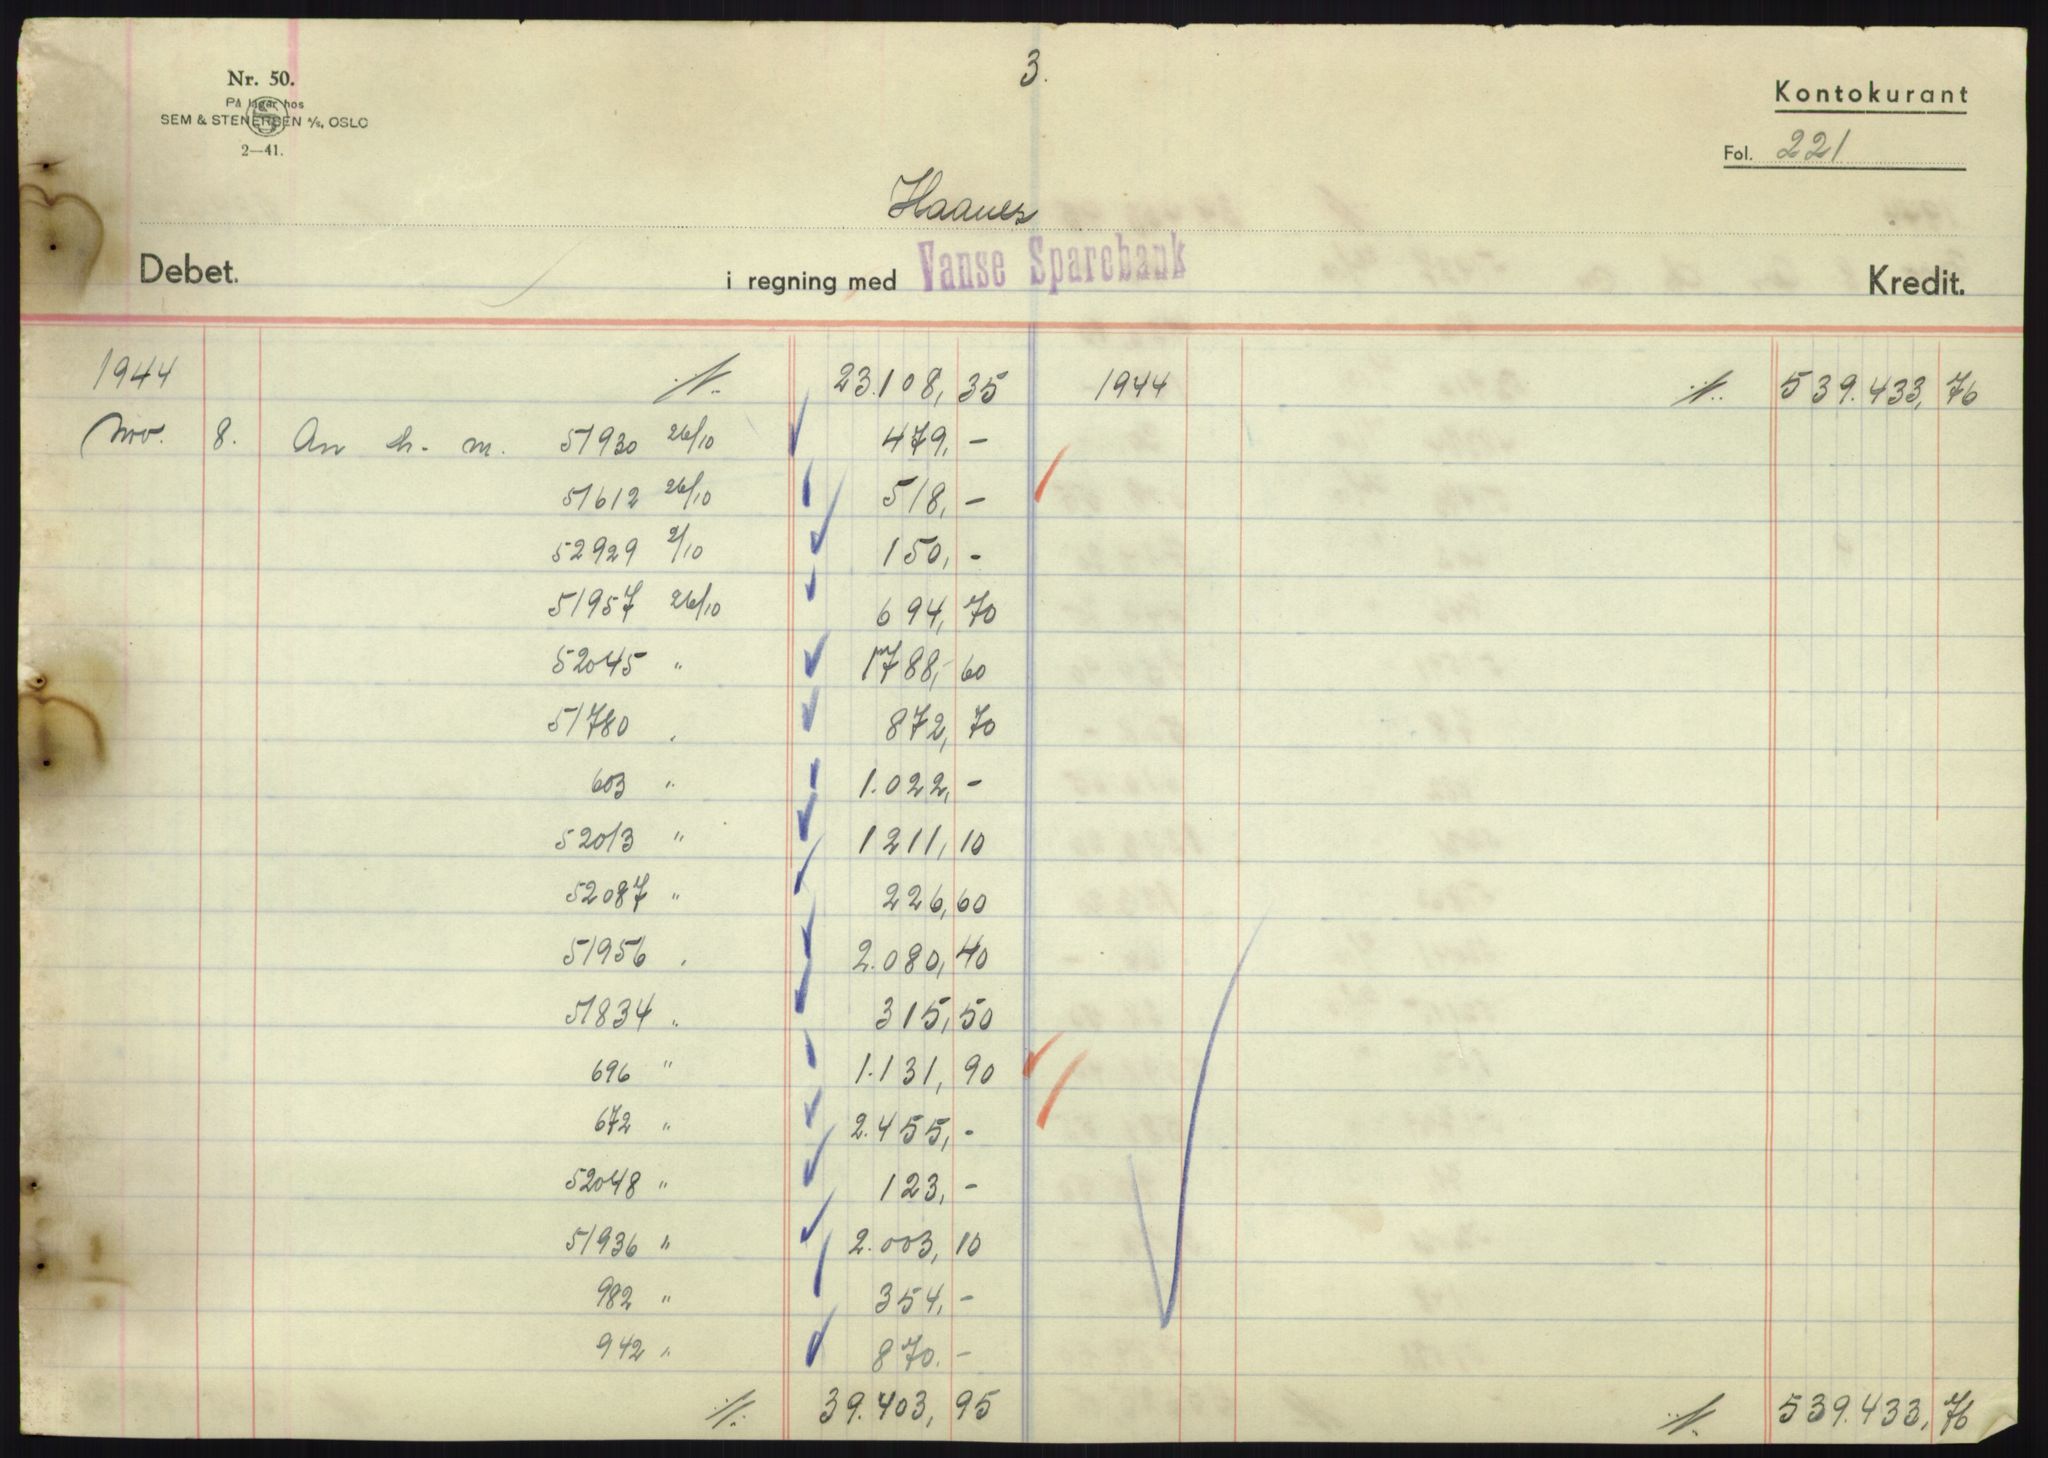 3.
Nr. 50.
På lager hos
SEM & STENERSEN A/S, OSLO
2—41.
Kontokurant
Fol. 221
Haanes
Debet. i regning med Vanse Sparebank Kredit.
1944 ·/· 23.108,35 1944 ·/· 539.433,76
Nov. 8. An h. m. 51930 26/10 479,-
51612 26/10 518,-
52929 2/10 150,-
51957 26/10 694,70
52045 " 1788,60
51780 " 872,70
603 " 1.022,-
52013 " 1211,10
52087 " 226,60
51956 " 2.080,40
51834 " 315,50
696 " 1.131,90
672 " 2.455,-
52048 " 123,-
51936 " 2.003,10
982 " 354,-
942 " 870.-
·/· 39.403,95 ·/· 539.433,76